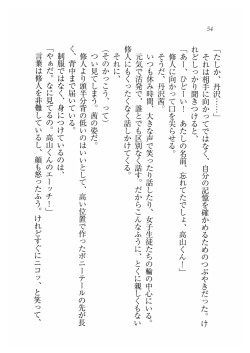 54
「たしか、丹沢……」
それは相手に向かってではなく、自分の記憶を確かめるためのつぶやきだった。け
れどしっかり聞きつけると、
「あー、ひどーい！　あたしの名前、忘れてたでしょ、高山くん！」
修人に向かって口を尖らせる。
そうだ、丹沢茜。
いつも休み時間、大きな声で笑ったり話したり、女子生徒たちの輪の中心にいる。
元気で活発で、誰とでも区別なく話す。だからこんなふうに、とくに親しくもない
修人にもくったくなく話しかけてくる。
それに、
（そのかっこう、って）
つい見てしまう。茜の姿だ。
修人より頭半分背の低いのはいいとして、高い位置で作ったポニーテールの先が長
く、背中まで届いている。
制服ではなく、身につけているのは、
「やぁだ。なに見てるの。高山くんのエーッチ！」
言葉は修人を非難しているし、顔も怒ったふう。けれどすぐにニコッ、と笑って、